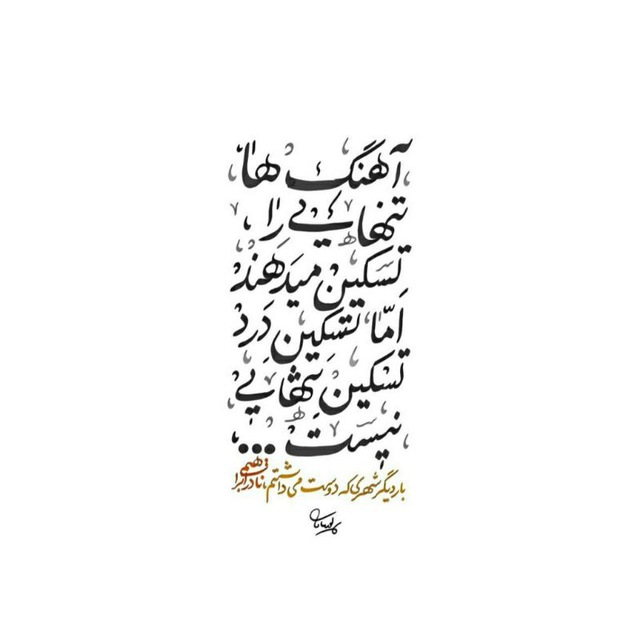 آهنگ ها
تنهایی را
تسکین میدهند
امّا تسکین دَرد
تسکین تنهایی
نیست ...
بار دیگر شهری که دوست می‌داشتم، نادر ابراهیمی